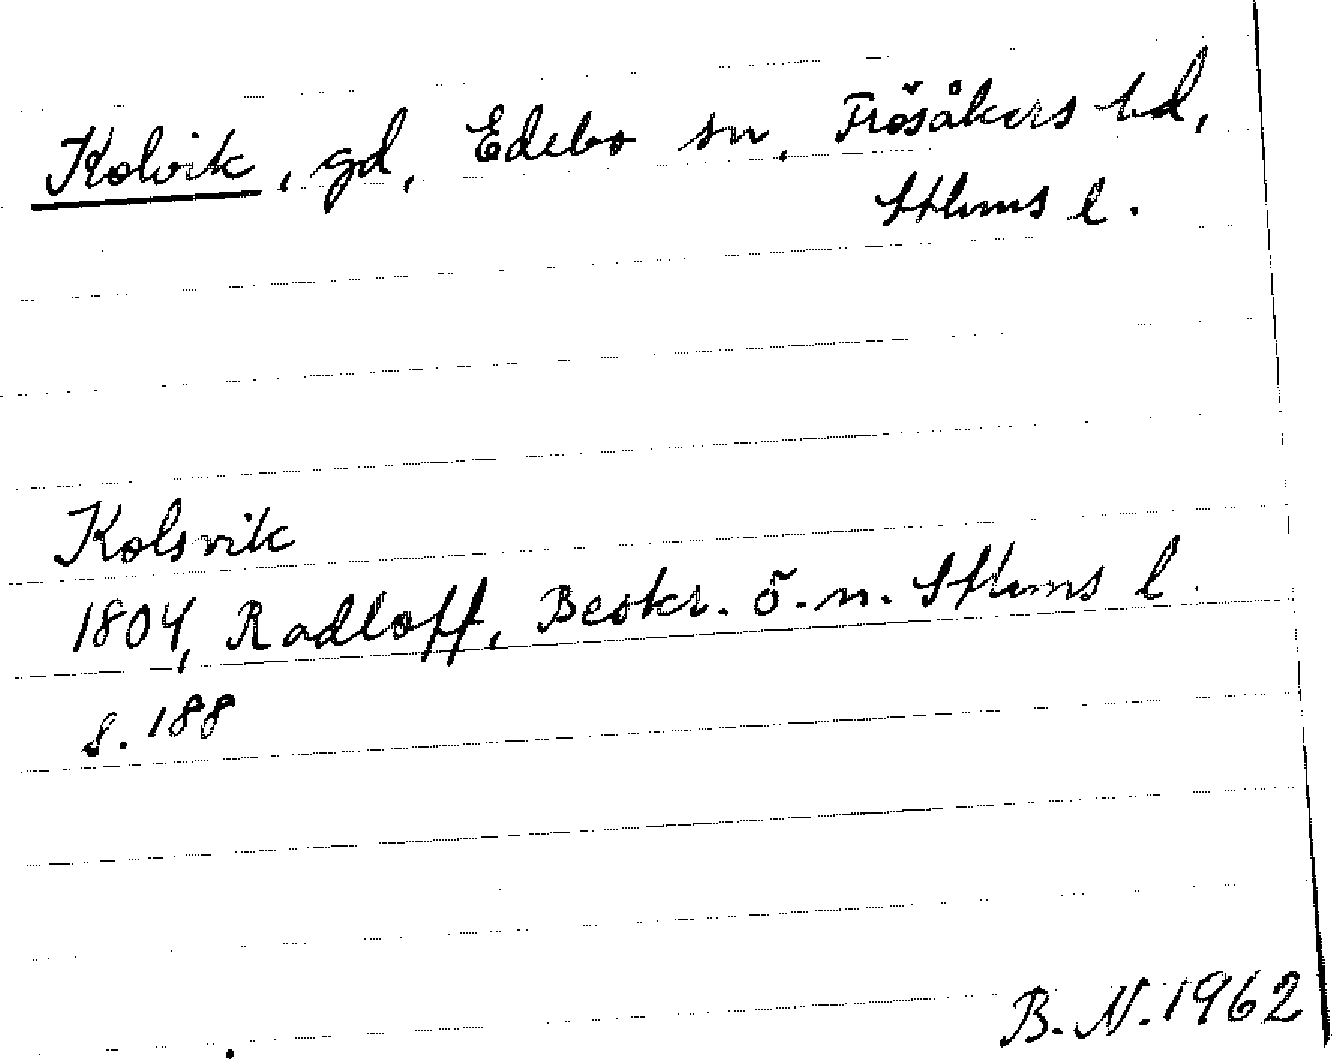 Kolvik, gd, Edebo sn, Frösåkers hd,
Sthlms l.
Kolsvik
1804, Radloff, Beskr. ö. n. Sthlms l.
s. 188
B. N. 1962